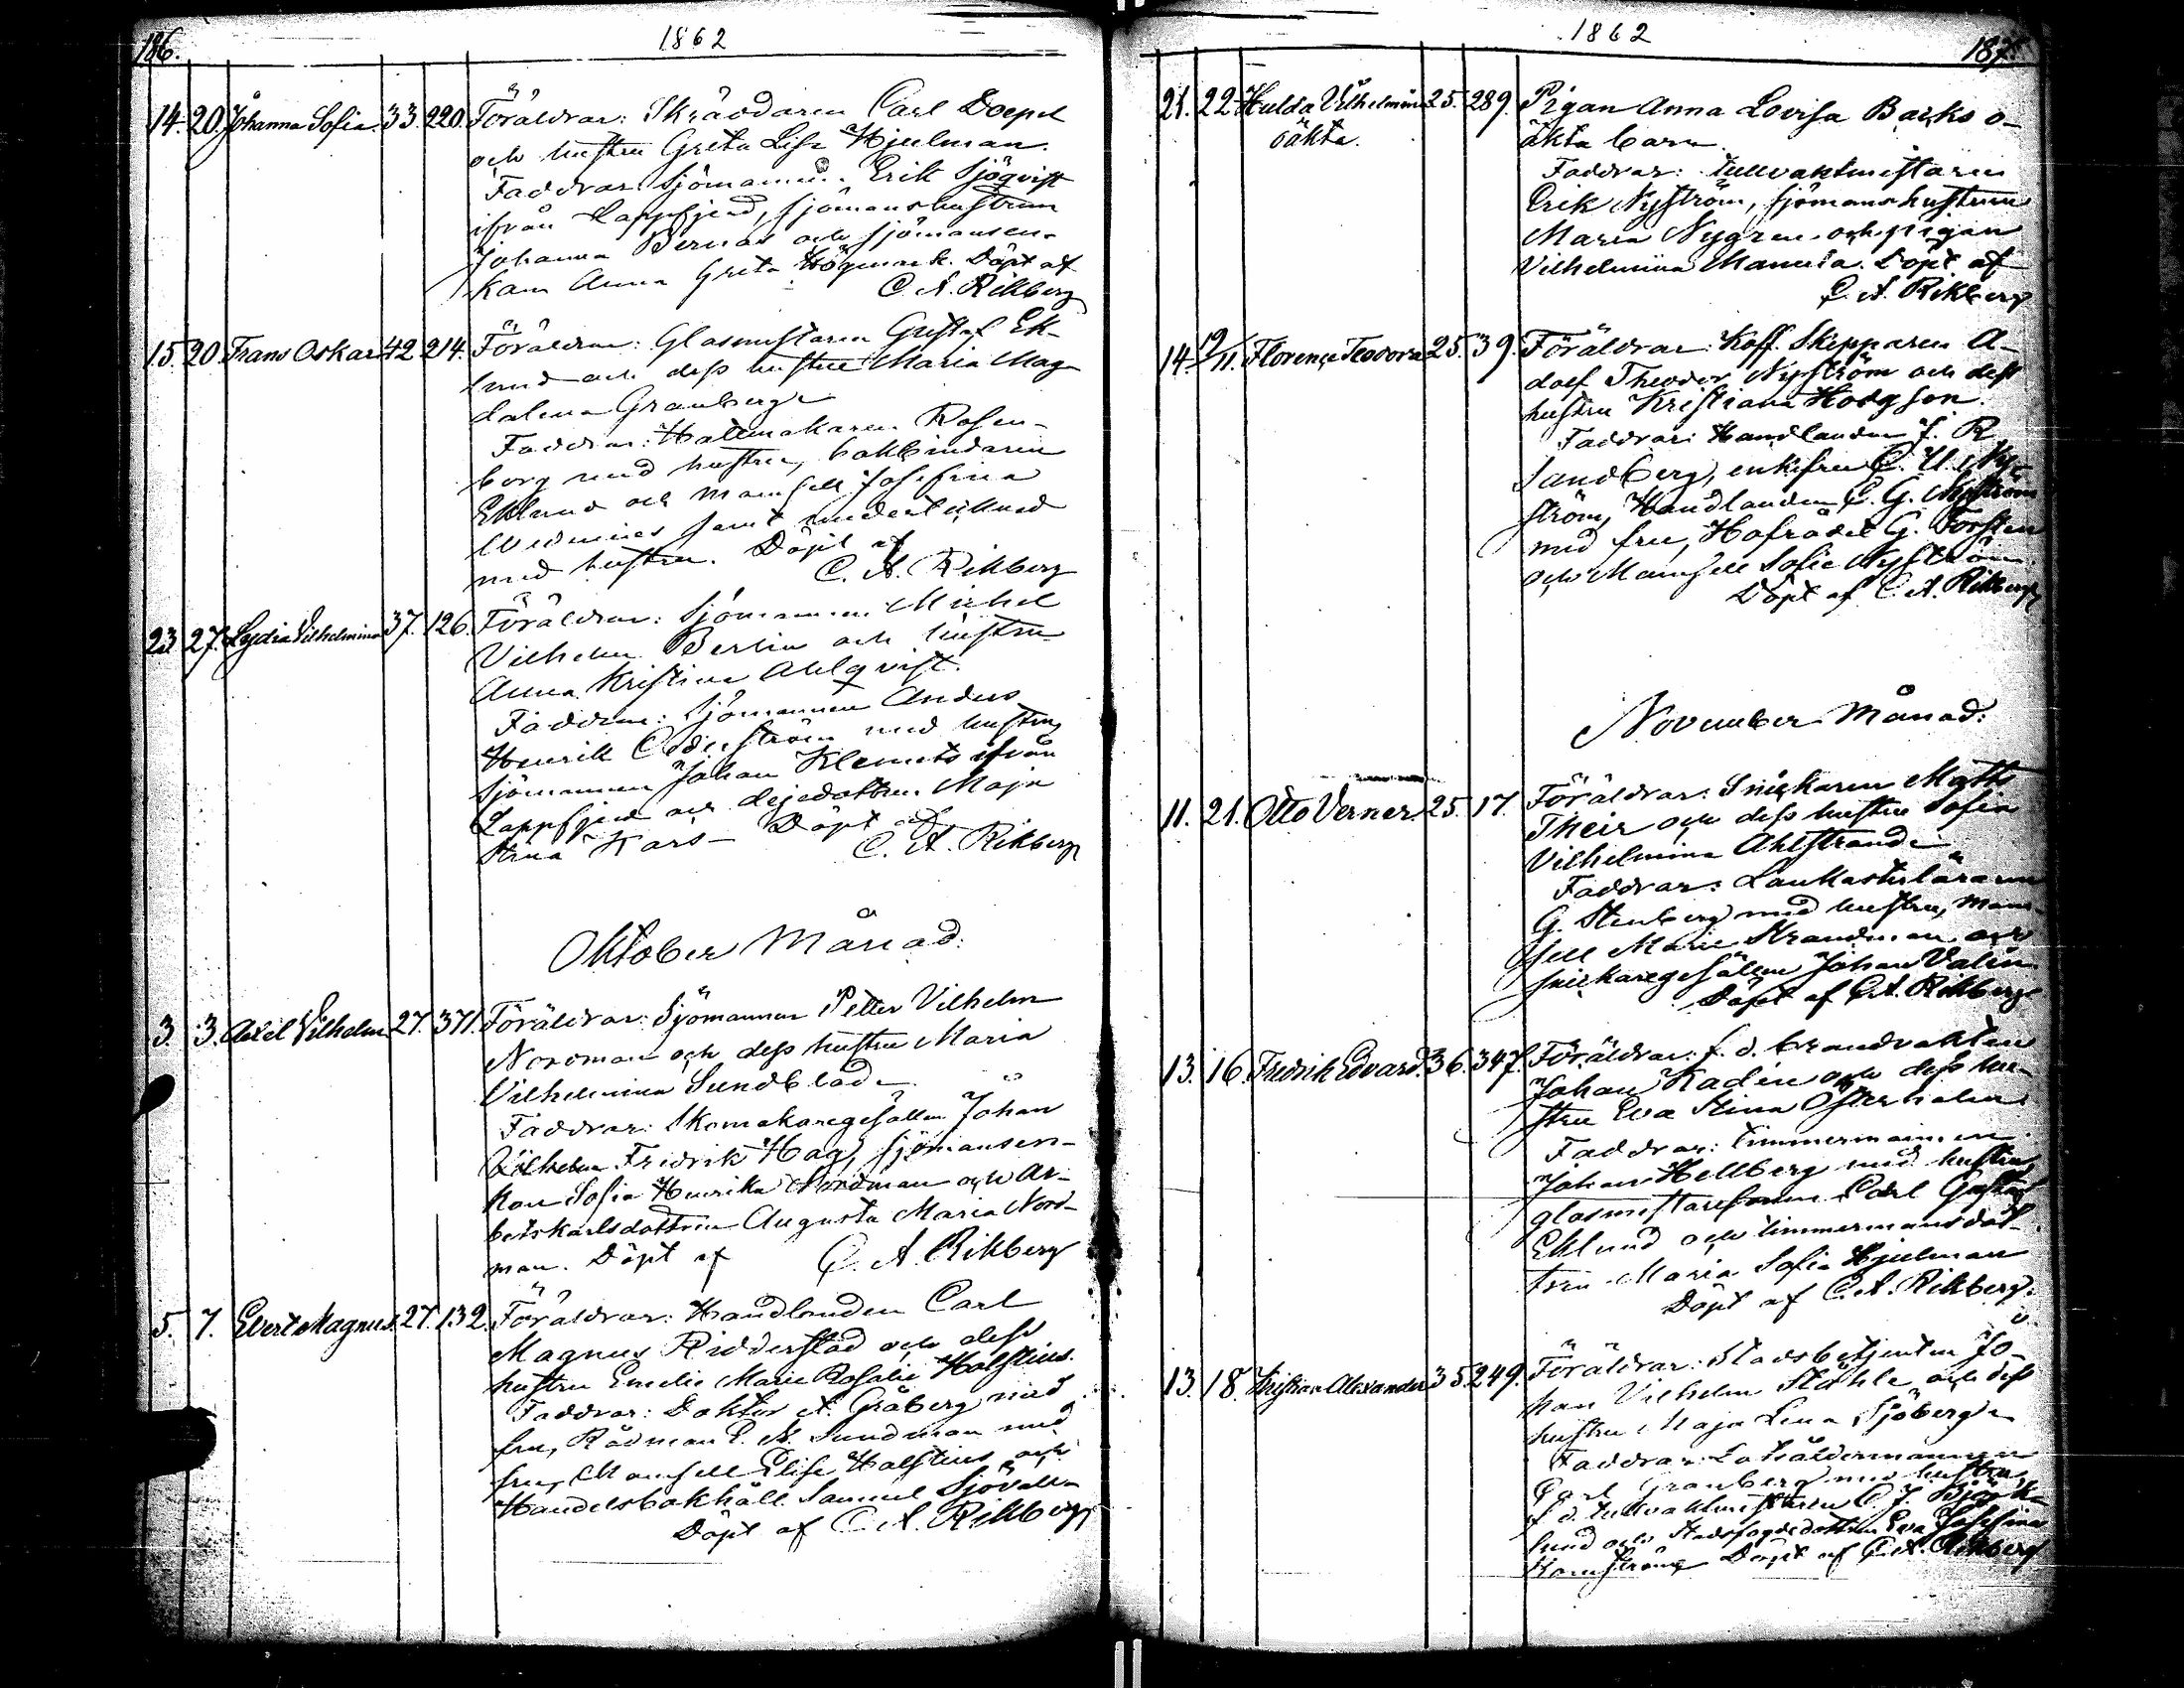 186.
1862
14. 20. Johanna Sofia. 33. 220. Föräldrar: Skräddaren Carl Doepel
och hustru Greta Lisa Hjulman.
Faddrar: Sjömannen Erik Sjöqvist
ifrån Lappfjerd, sjömanshustrun
Johanna Bernas och sjömansen-
kan Anna Greta Högmark. Döpt af
C. A. Rikberg
15. 20. Frans Oskar 42 214. Föräldrar: Glasmästaren Gustaf Ek-
lund och dess hustru Maria Mag-
dalena Granberg.
Faddrar: Hattmakaren Rosen-
borg med hustru, bokbindaren
Eklund och Mamsell Josefina
samt undertecknad
med hustru. Döpt af
C. A. Rikberg
23 27. Lydia Vilhelmina 37. 126. Föräldrar: Sjömannen Mickel
Vilhelm Berlin och hustru
Anna Kristina Ahlqvist.
Faddrar: Sjömannen Anders
Henrik Cederström med hustru,
sjömannen Johan Klemets ifrån
Lappfjerd och dejedottren Maja
Stina Kars- Döpt af
C. A. Rikberg
Oktober Månad:
3. 3. Axel Vilhelm 27. 371. Föräldrar: Sjömannen Petter Vilhelm
Nordman och dess hustru Maria
Vilhelmina Sundblad.
Faddrar: Skomakaregesällen Johan
Vilhelm Fredrik Hag, sjömansen-
kan Sofia Henrika Nordman och ar-
betskarlsdottren Augusta Maria Nord-
man. Döpt af C. A. Rikberg
5. 7. Evert Magnus. 27. 132. Föräldrar: Handlanden Carl
Magnus Ridderstad och dess
hustru Emelie Marie Rosalie Holstius.
Faddrar: Doktor A. Gråberg med
fru, Rådman E. A. Sundman med
fru, Mamsell Elise Holstius och
Handelsbokhåll. Samuel Sjövall.
Döpt af C. A. Rikberg
1862
187.
21. 22. Hulda Vilhelmina 25. 289. Pigan Anna Lovisa Barks o-
oäkta. äkta barn.
Faddrar: tullvaktmästaren
Erik Nyström, sjömanshustrun
Maria Nygren och pigan
Vilhelmina Manula. Döpt af
C. A. Rikberg
14. 19/11. Florence Teodora 25. 39. Föräldrar: Koff. Skepparen A-
dolf Theodor Nyström och dess
hustru Kristiana Hodgson.
Faddrar: Handlanden J. R.
Sandberg, enkefru C. U. Ny-
ström, Handlanden C. G. Nyström
med fru, Hofrådet G. Forsten
och Mamsell Sofie Nyström.
Döpt af C. A. Rikberg
November Månad:
11. 21. Otto Verner. 25. 17. Föräldrar: Snickaren Matts
Their och dess hustru Sofia
Vilhelmina Ahlstrand.
Faddrar: Lankasterläraren
G. Stenberg med hustru, Mam-
sell Marie Strandman och
snickaregesällen Johan Valin.
Döpt af C. A. Rikberg
13. 16. Fredrik Edvard. 36. 347. Föräldrar: f. d. brandvakten
Johan Kadén och dess hu-
stru Eva Stina Österholm.
Faddrar: Timmermannen
Johan Hellberg med hustru,
glasmästaresonen Carl Gustaf
Eklund och timmermansdot-
tren Maria Sofia Hjulman
Döpt af C. A. Rikberg.
13. 18. Kristian Alexander 35. 249. Föräldrar: Stadsbetjenten Jo-
han Vilhelm Ståhle och dess
hustru Maja Lena Sjöberg.
Faddrar: Lotsåldermannen
Carl Granberg med hustru,
f. d. tullvaktmästaren C. J. Björk-
lund och Stadsfogdedottren Eva Josefina
Kamström Döpt af C. A. Rikberg